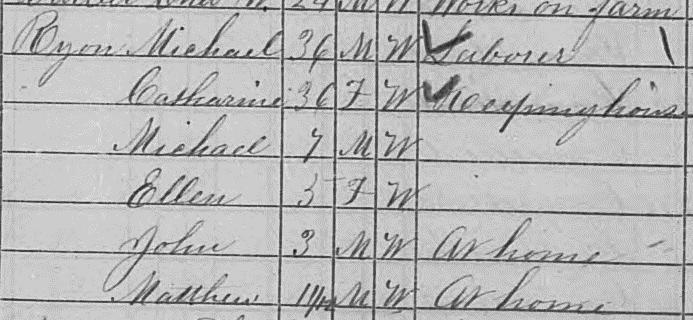 24 M W Works on farm
Ryon Michael 36 M W Laborer
Catharine 36 F W Keeping house
Michael 7 M W
Ellen 5 F W
John 3 M W At home
Matthew M W At home